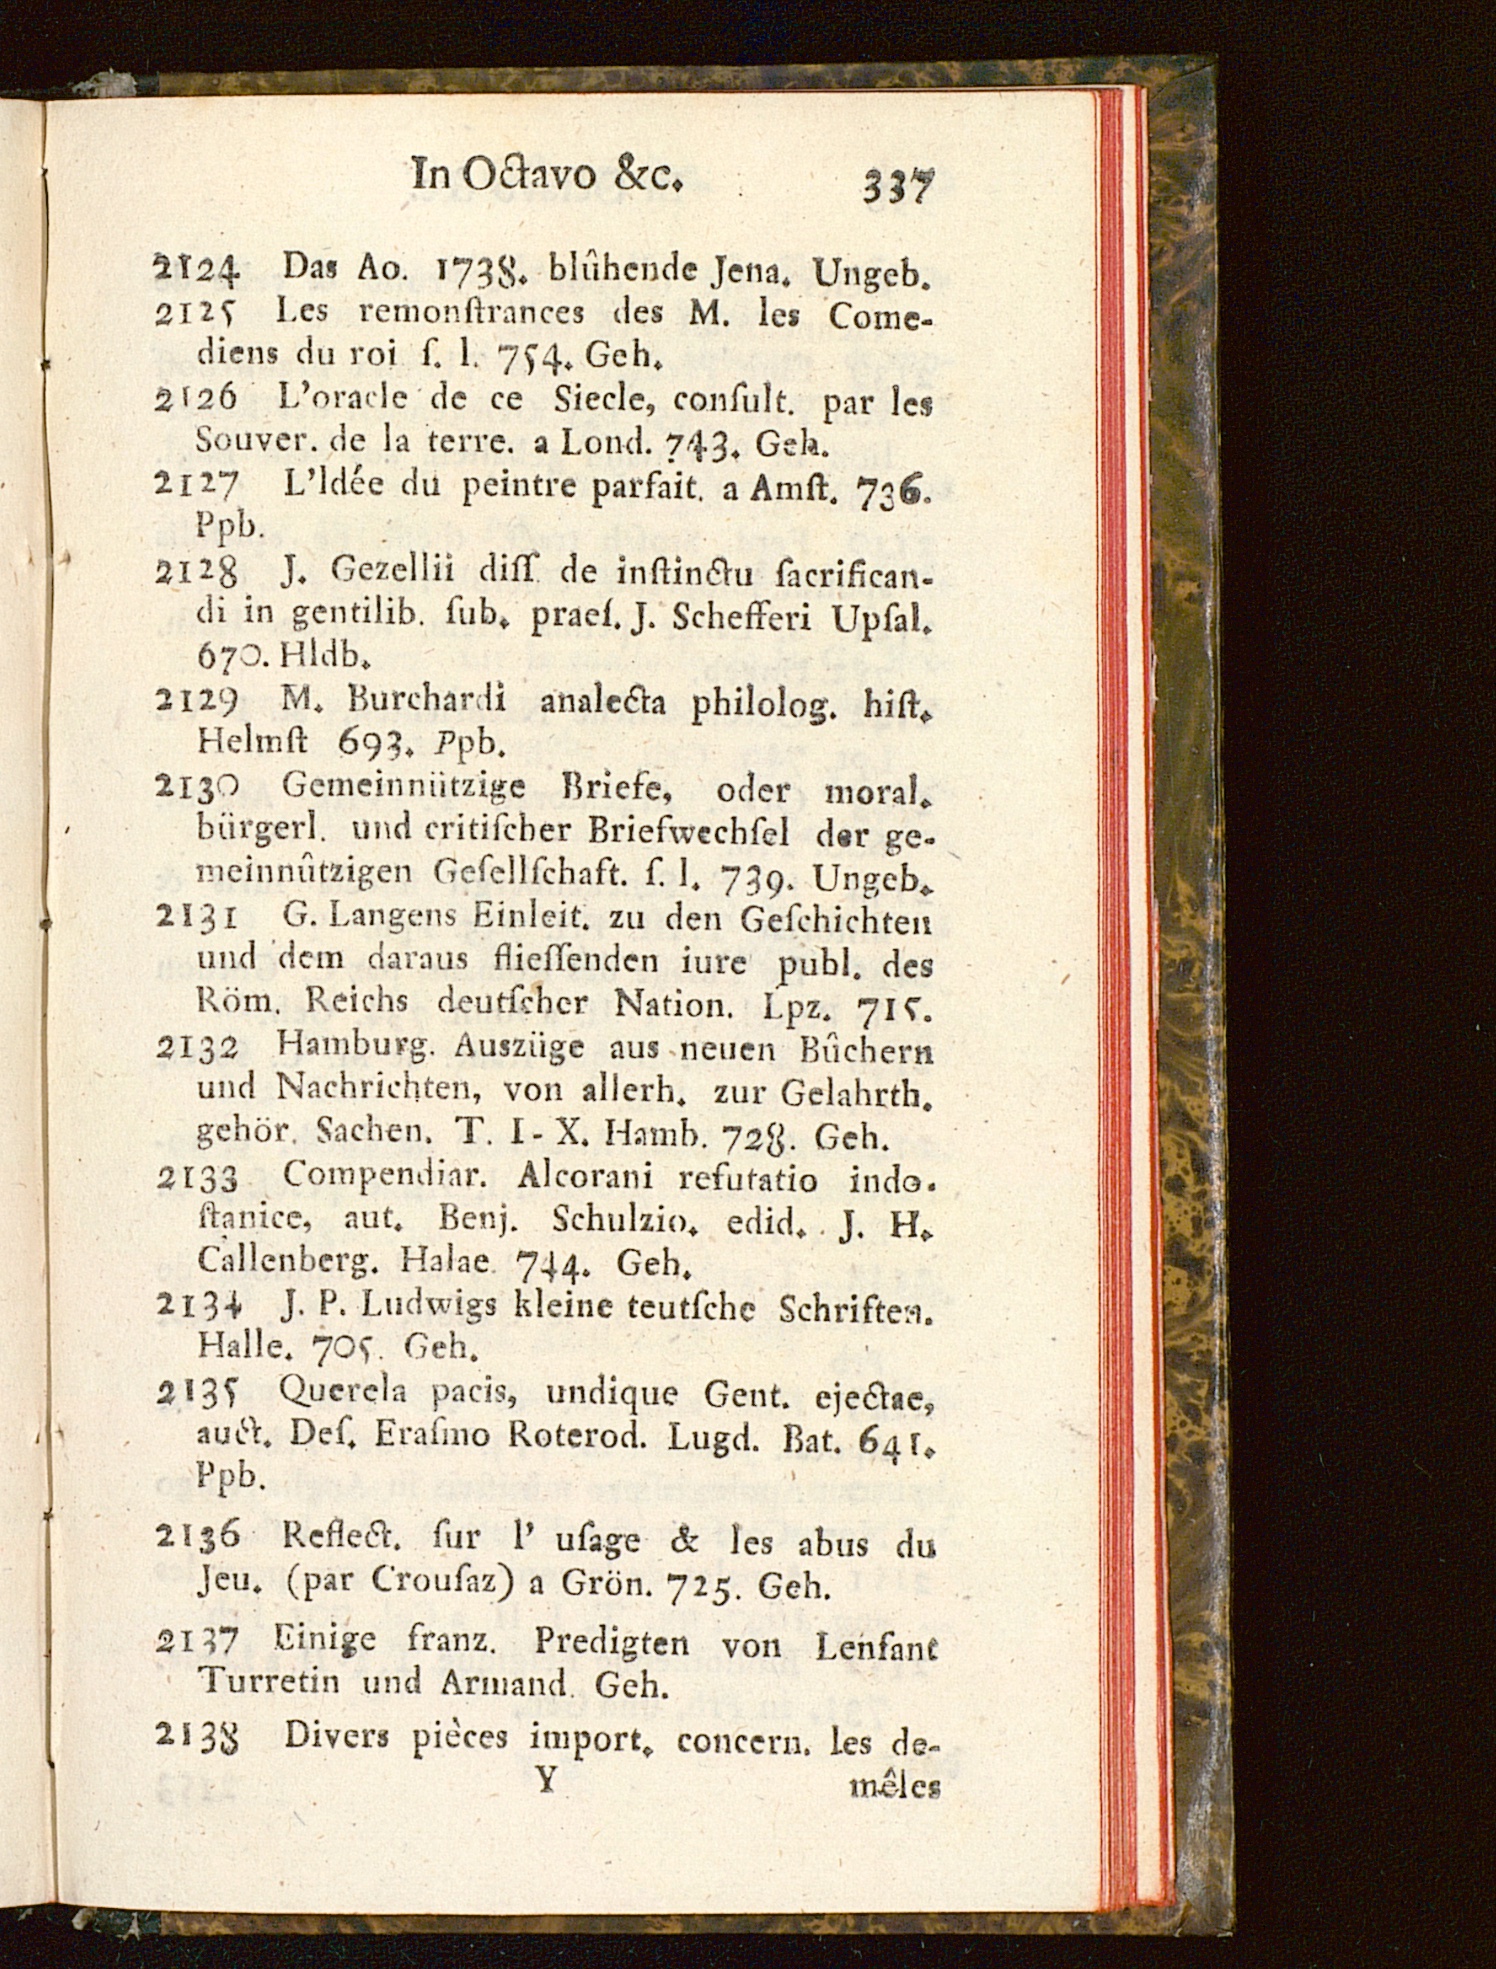 In Octavo &c. 337
2124 Das Ao. 1738. blûhende Jena. Ungeb.
2125 Les remonſtrances des M. les Come-
diens du roi ſ. l. 754. Geh.
2126 L'oracle de ce Siecle, conſult. par les
Souver. de la terre. a Lond. 743. Geh.
2127 L'Idée du peintre parfait. a Amſt. 736.
Ppb.
2128 J. Gezellii diſſ. de inſtinctu ſacrifican-
di in gentilib. ſub. praeſ. J. Schefferi Upſal.
670. Hldb.
2129 M. Burchardi analecta philolog. hiſt.
Helmſt 693. Ppb.
2130 Gemeinnützige Briefe, oder moral.
bürgerl. und critiſcher Briefwechſel der ge-
meinnûtzigen Geſellſchaft. ſ. l. 739. Ungeb.
2131 G. Langens Einleit. zu den Geſchichten
und dem daraus flieſſenden iure publ. des
Röm. Reichs deutſcher Nation. Lpz. 715.
2132 Hamburg. Auszüge aus neuen Bûchern
und Nachrichten, von allerh. zur Gelahrth.
gehör. Sachen. T. I-X. Hamb. 728. Geh.
2133 Compendiar. Alcorani refutatio indo-
ſtanice, aut. Benj. Schulzio. edid. J. H.
Callenberg. Halae 744. Geh.
2134 J. P. Ludwigs kleine teutſche Schriften.
Halle. 705. Geh.
2135 Querela pacis, undique Gent. ejectae,
auct. Deſ. Eraſmo Roterod. Lugd. Bat. 641.
Ppb.
2136 Reflect. ſur l' uſage & les abus du
Jeu. (par Crouſaz) a Grön. 725. Geh.
2137 Einige franz. Predigten von Lenfant
Turretin und Armand. Geh.
2138 Divers pièces import. concern. les de-
Y mêles